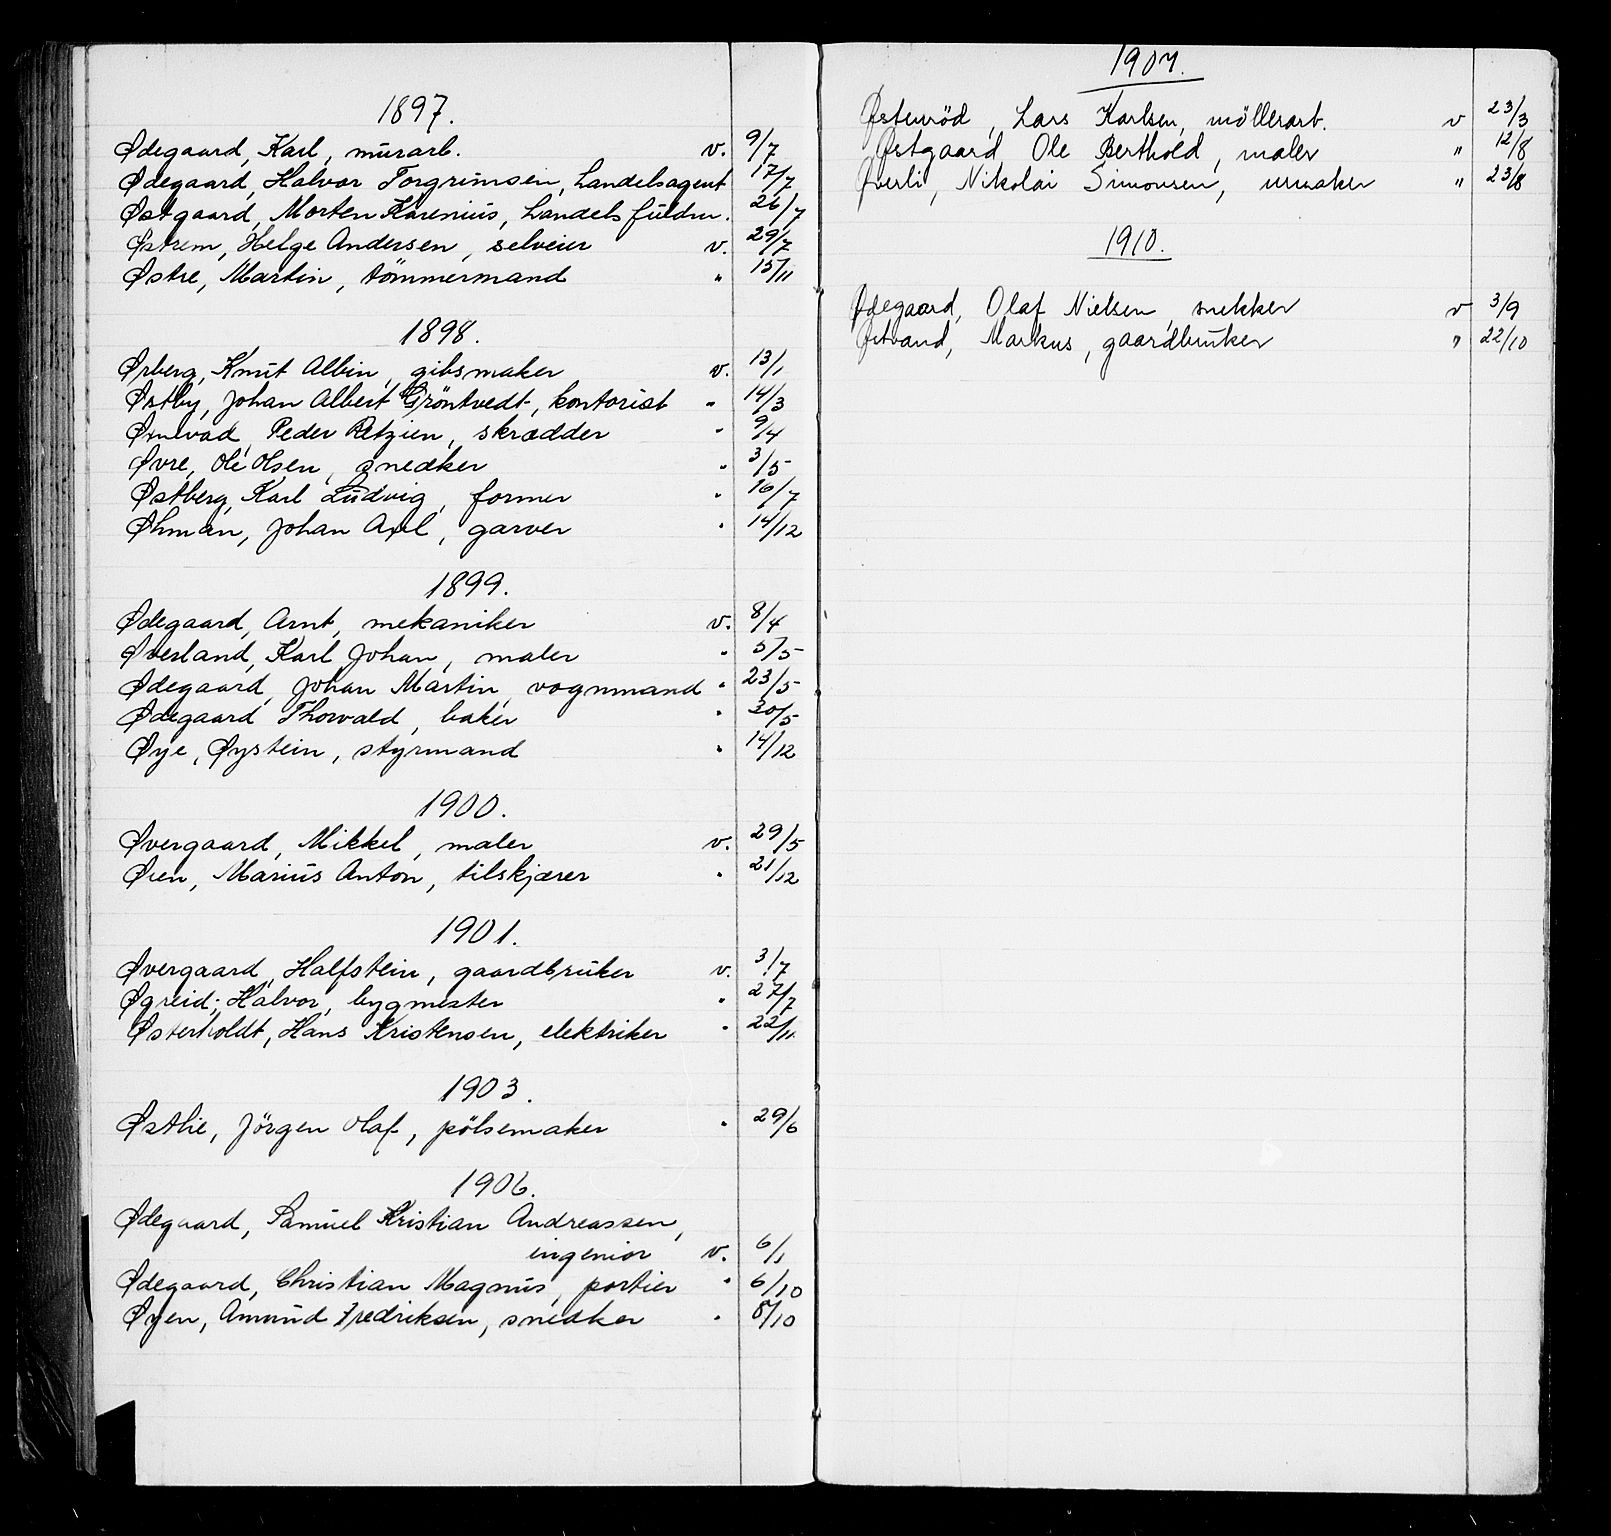 1897.
Ødegaard, Karl, murarb. v. 9/7
Ødegaard, Halvor Torgrimsen, handelsagent 17/7
Østgaard, Morten Karenius, handelsfuldm. 26/7
Østrem, Helge Andersen, selveier v. 29/7
Østre, Martin, tömmermand " 15/11
1898.
Ørberg, Knut Albin, gibsmaker v. 13/1
Østby, Johan Albert Gröntvedt, kontorist " 14/3
Peder Retzien, skrædder " 9/4
Øvre, Ole Olsen, snedker " 3/5
Østberg, Karl Ludvig, former " 16/7
Øhman, Johan Axel, garver " 14/12
1899.
Ødegaard, Arnt, mekaniker v. 8/4
Øverland, Karl Johan, maler " 5/5
Ødegaard, Johan Martin, vognmand " 23/5
Ødegaard Thorvald, baker " 30/5
Øye, Øystein, styrmand " 14/12
1900.
Øvergaard, Mikkel, maler v. 29/5
Øien, Marius Anton, tilskjærer " 21/12
1901.
Øvergaard, Halfstein, gaardbruker v. 3/7
Øgreid, Halvor, bygmester " 27/7
Østerholdt, Hans Kristensen, elektriker " 22/11
1903.
Østlie, Jörgen Olaf, pölsemaker " 29/6
1906.
Ødegaard, Samuel Kristian Andreassen,
ingeniør v. 6/1
Ødegaard, Christian Magnus, portier " 6/10
Øyen, Amund Fredriksen, snedker " 8/10
1907.
Østenröd, Lars Karlsen, möllerarb. v 23/3
Østgaard, Ole Berthold, maler " 12/8
Øverli, Nikolai Simonsen, urmaker " 23/8
1910.
Ødegaard, Olaf Nielsen, snekker v 3/9
Østvand, Markus, gaardbruker " 22/10